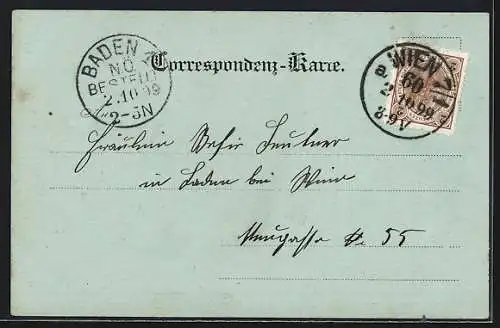 BADEN
N.Ö.
BESTELLT
2.10.99
2-5N
Correspondenz-Karte.
WIEN 7/1
60
2.10.99
8-9V
Fräulein
in Baden bei Wien
Neugasse № 55